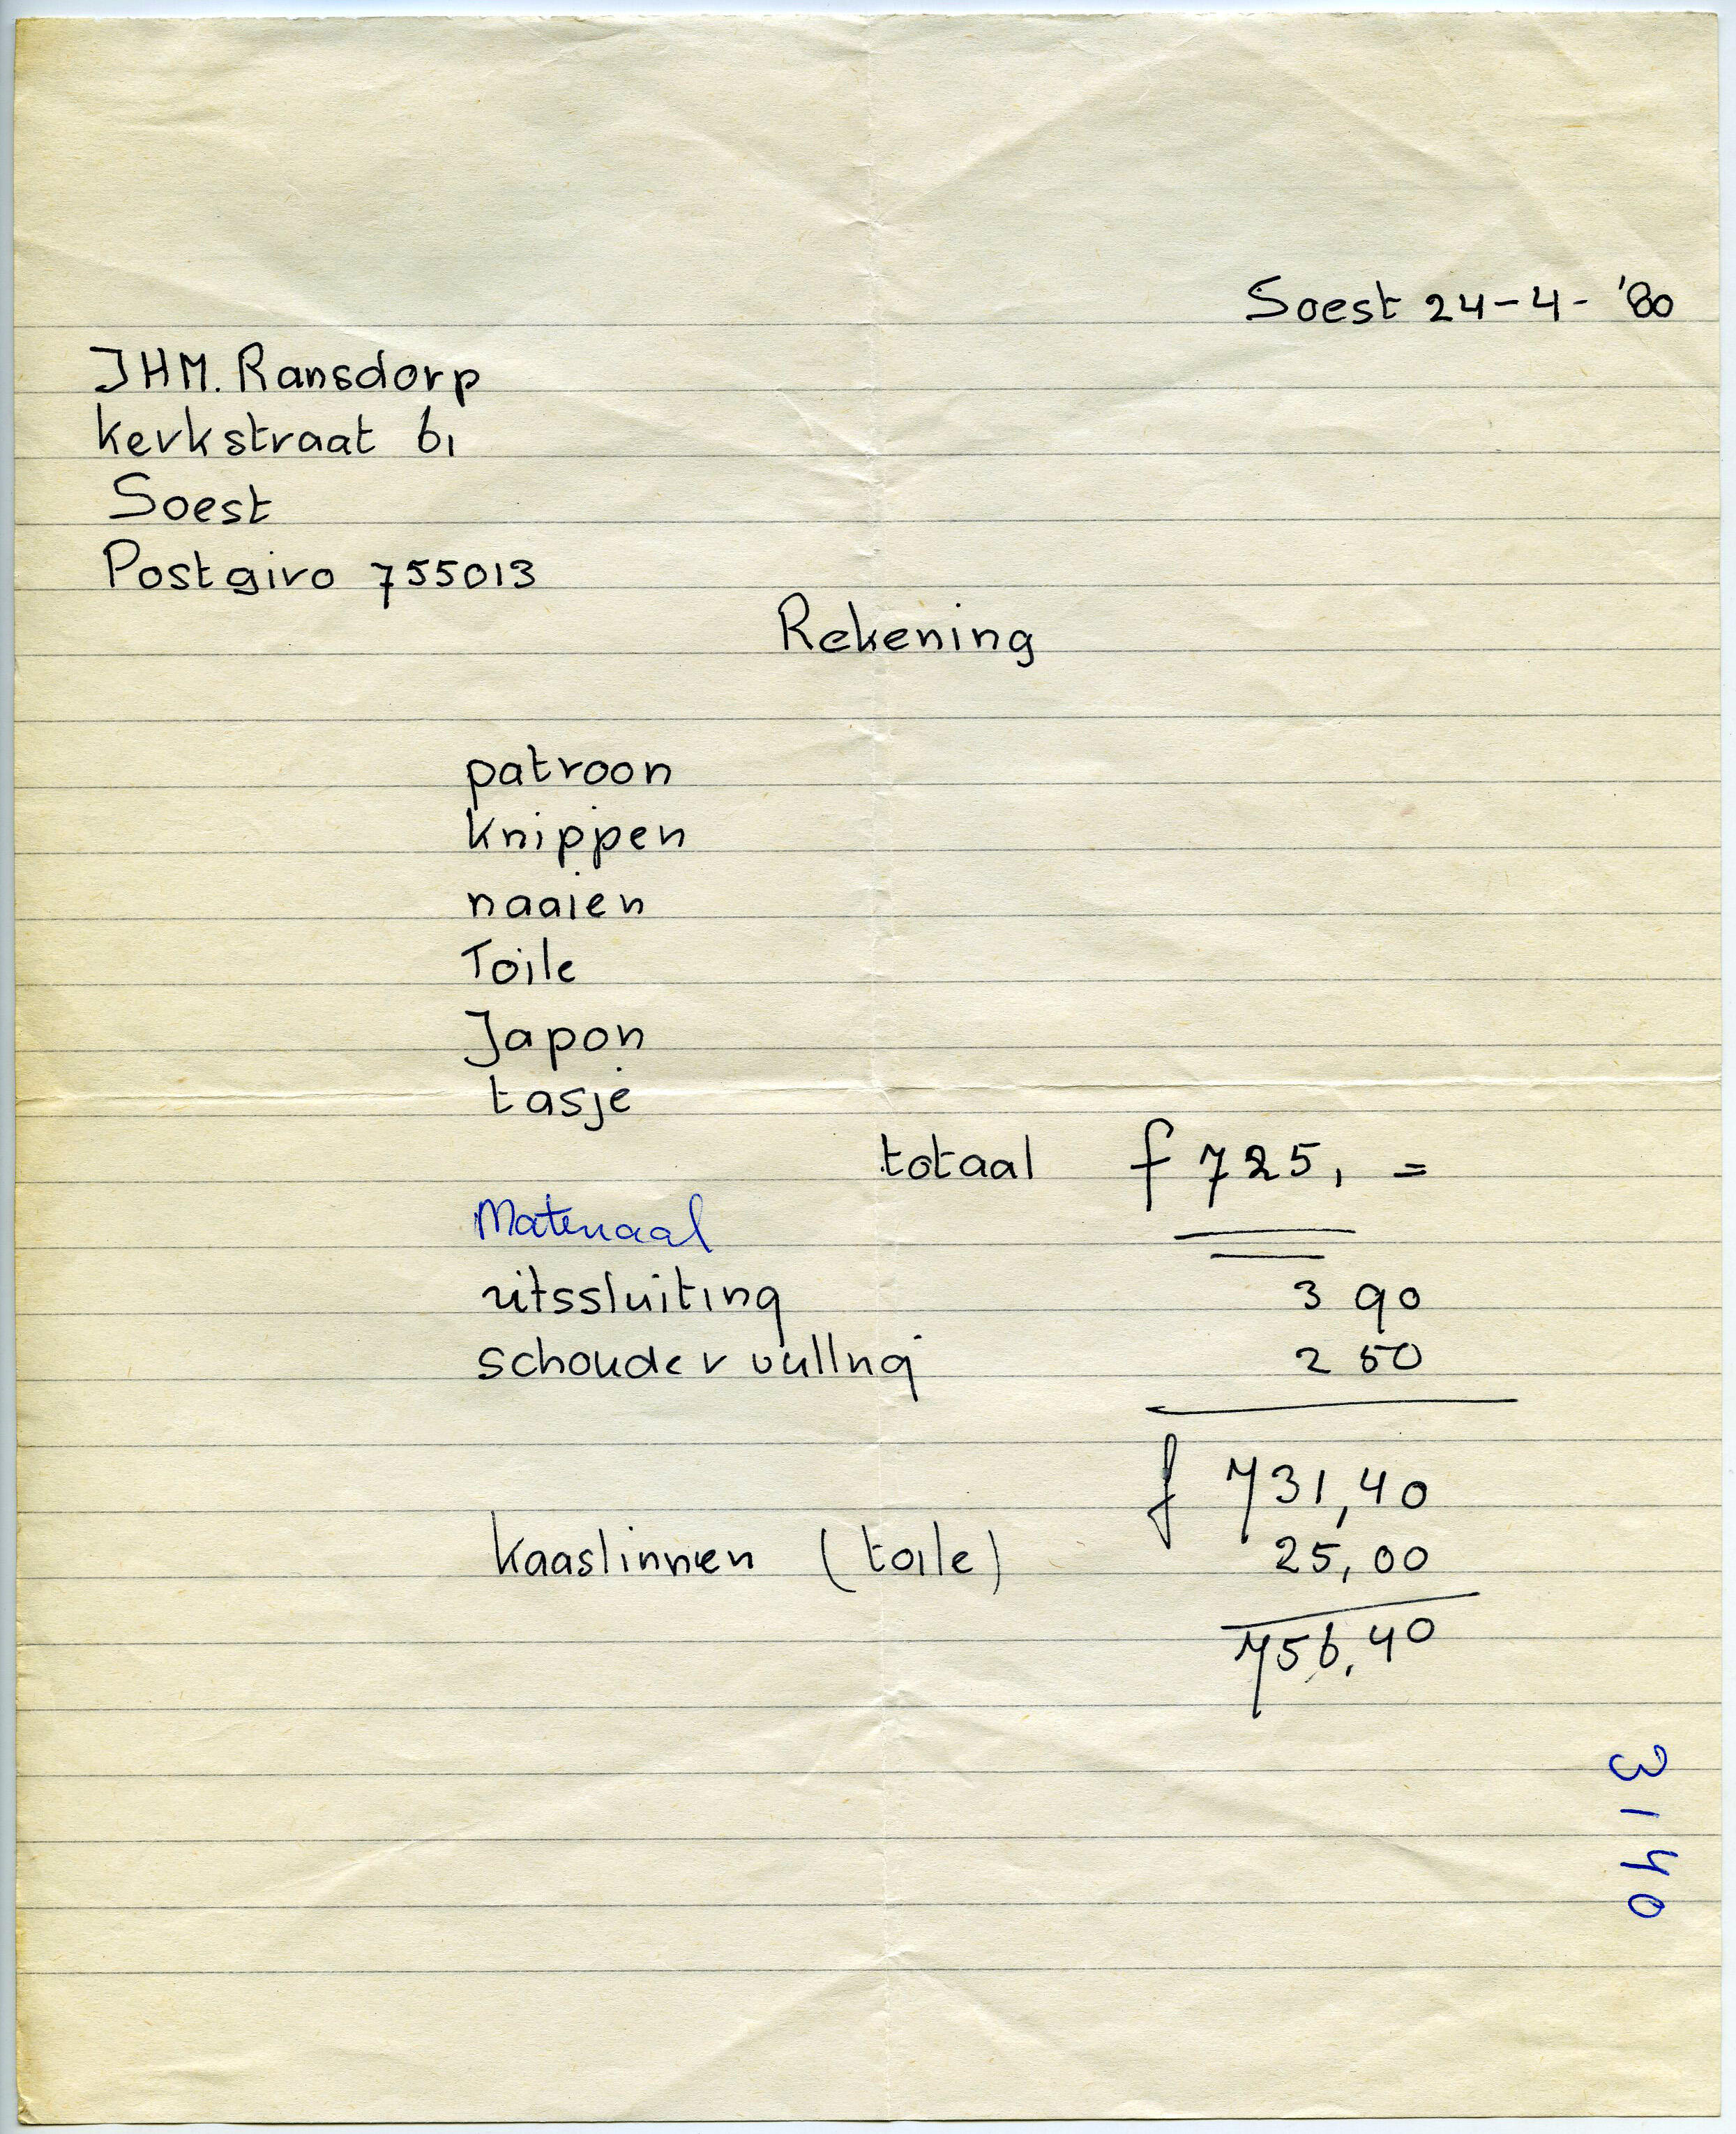 Soest 24-4-'80
JHM. Ransdorp
kerkstraat 61
Soest
Postgiro 755013
Rekening
patroon
knippen
naaien
Toile
Japon
tasje
totaal f 725, =
Materiaal
ritssluiting 3 90
schoudervulling 2 50
f 731,40
kaaslinnen (toile) 25,00
756,40
3140